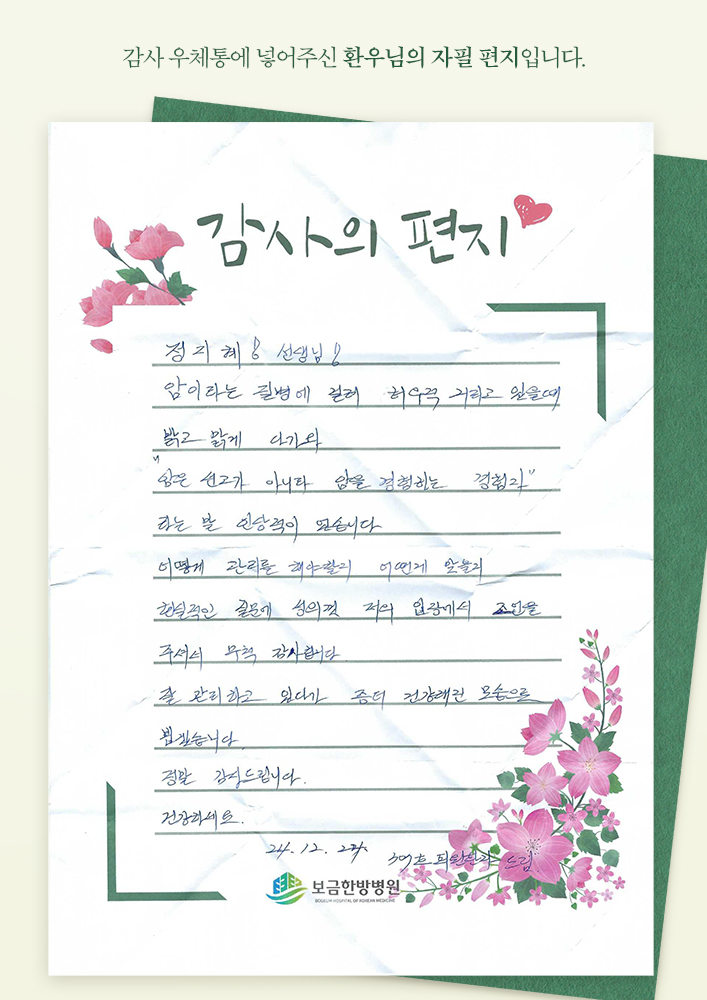 감사 우체통에 넣어주신 환우님의 자필 편지입니다.
감사의 편지
정지혜! 선생님!
암이라는 질병에 걸려 허우적 거리고 있을때
밝고 맑게 다가와
"암은 선고가 아니라 암을 경험하는 경험자"
라는 말 인상적이 였습니다
어떻게 관리를 해야할지 어떤게 맞을지
현실적인 질문에 성의껏 저의 입장에서 조언을
주셔서 무척 감사합니다.
잘 관리하고 있다가 좀더 건강해진 모습으로
뵙겠습니다.
정말 감사드립니다.
건강하세요.
24. 12. 24
드림
보금한방병원
BOGEUM HOSPITAL OF KOREAN MEDICINE